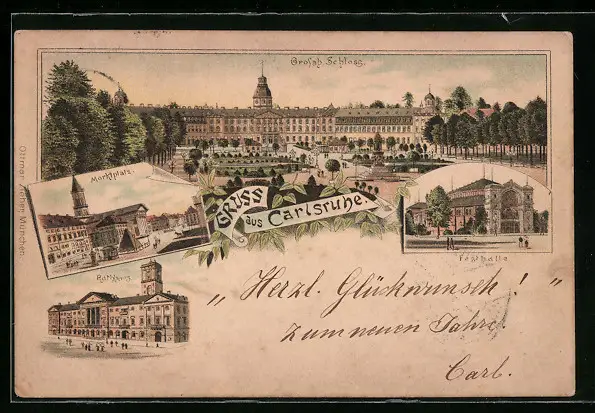 Grossh. Schloss.
Marktplatz.
GRUSS
aus Carlsruhe.
Festhalle
Rathhaus
„ Herzl. Glückwunsch! "
zum neuen Jahre.
Carl.
Ottmar Zieher, München.